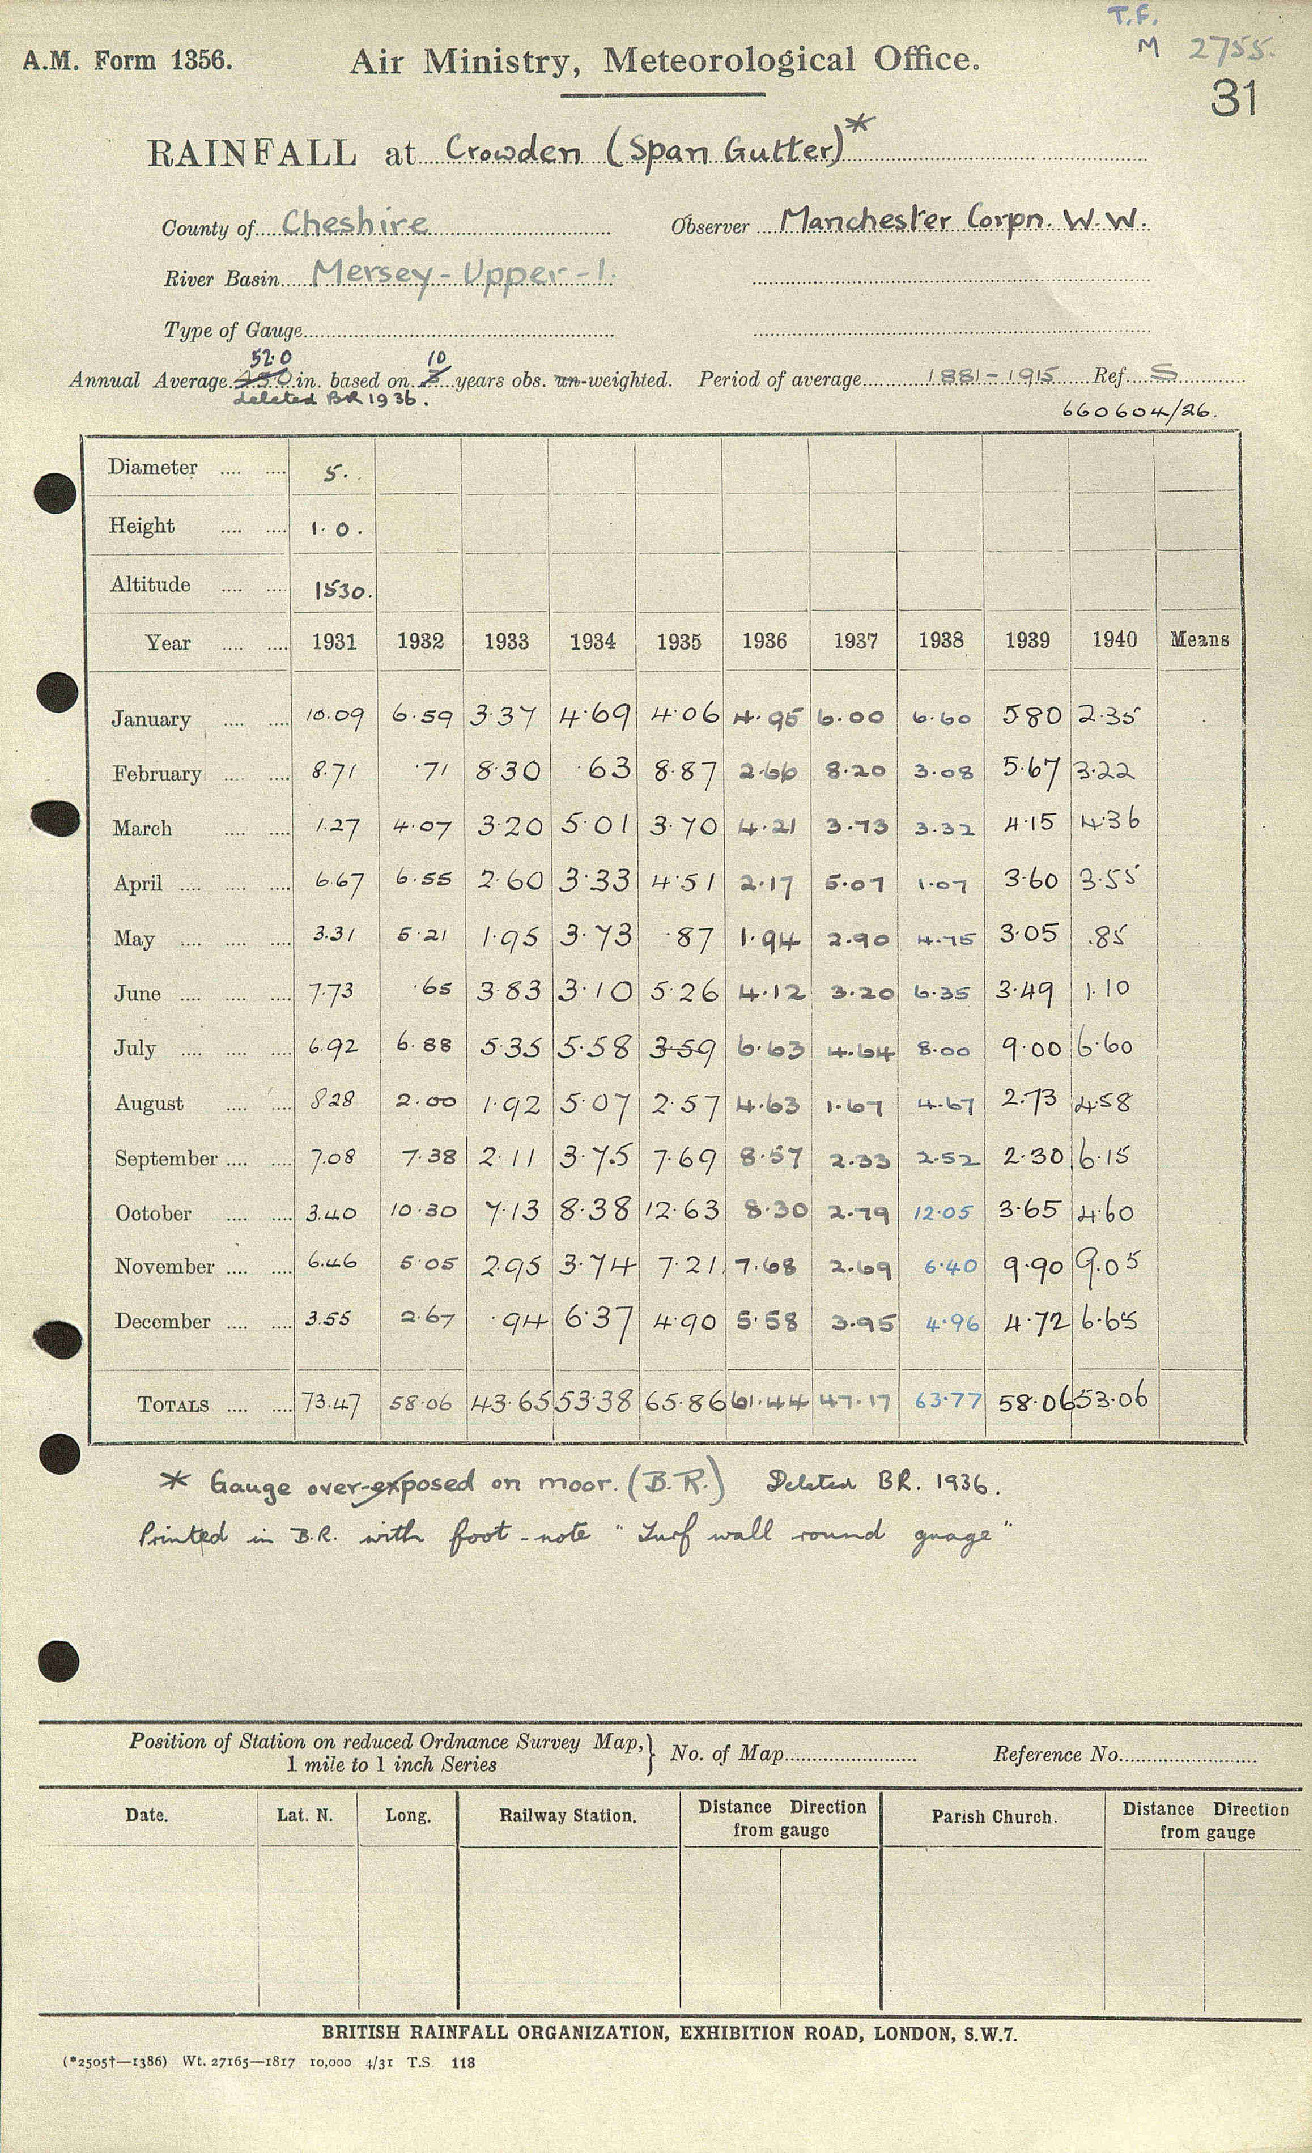 T.F.
M 2755.
A.M. Form 1356. Air Ministry, Meteorological Office.
31
RAINFALL at Crowden (Span Gutter)*
County of Cheshire Observer Manchester Corpn. W.W.
River Basin Mersey-Upper-1.
Type of Gauge
52.0 10
Annual Average in. based on years obs. un-weighted. Period of average 1881-1915 Ref. S
deleted BR 1936.
660604/26.
Diameter 5.
Height 1.0.
Altitude 1530.
Year 1931 1932 1933 1934 1935 1936 1937 1938 1939 1940 Means
January 10.09 6.59 3.37 4.69 4.06 4.95 6.00 6.60 5.80 2.35
February 8.71 .71 8.30 .63 8.87 2.66 8.20 3.08 5.67 3.22
March 1.27 4.07 3.20 5.01 3.70 4.21 3.73 3.32 4.15 4.36
April 6.67 6.55 2.60 3.33 4.51 2.17 5.07 1.07 3.60 3.55
May 3.31 5.21 1.95 3.73 .87 1.94 2.90 4.75 3.05 .85
June 7.73 .65 3.83 3.10 5.26 4.12 3.20 6.35 3.49 1.10
July 6.92 6.88 5.35 5.58 3.59 6.63 4.64 8.00 9.00 6.60
August 8.28 2.00 1.92 5.07 2.57 4.63 1.67 4.67 2.73 4.58
September 7.08 7.38 2.11 3.75 7.69 8.57 2.33 2.52 2.30 6.15
October 3.40 10.30 7.13 8.38 12.63 8.30 2.79 12.05 3.65 4.60
November 6.46 5.05 2.95 3.74 7.21 7.68 2.69 6.40 9.90 9.05
December 3.55 2.67 .94 6.37 4.90 5.58 3.95 4.96 4.72 6.65
TOTALS 73.47 58.06 43.65 53.38 65.86 61.44 47.17 63.77 58.06 53.06
* Gauge over-exposed on moor. (B.R.) Deleted BR. 1936.
Printed in B.R. with foot-note "Turf wall round guage"
Position of Station on reduced Ordnance Survey Map, } No. of Map Reference No.
1 mile to 1 inch Series
Date. Lat. N. Long. Railway Station. Distance Direction from gauge Parish Church. Distance Direction from gauge
BRITISH RAINFALL ORGANIZATION, EXHIBITION ROAD, LONDON, S.W.7.
(*2505†—1386) Wt. 27165—1817 10,000 4/31 T.S. 118